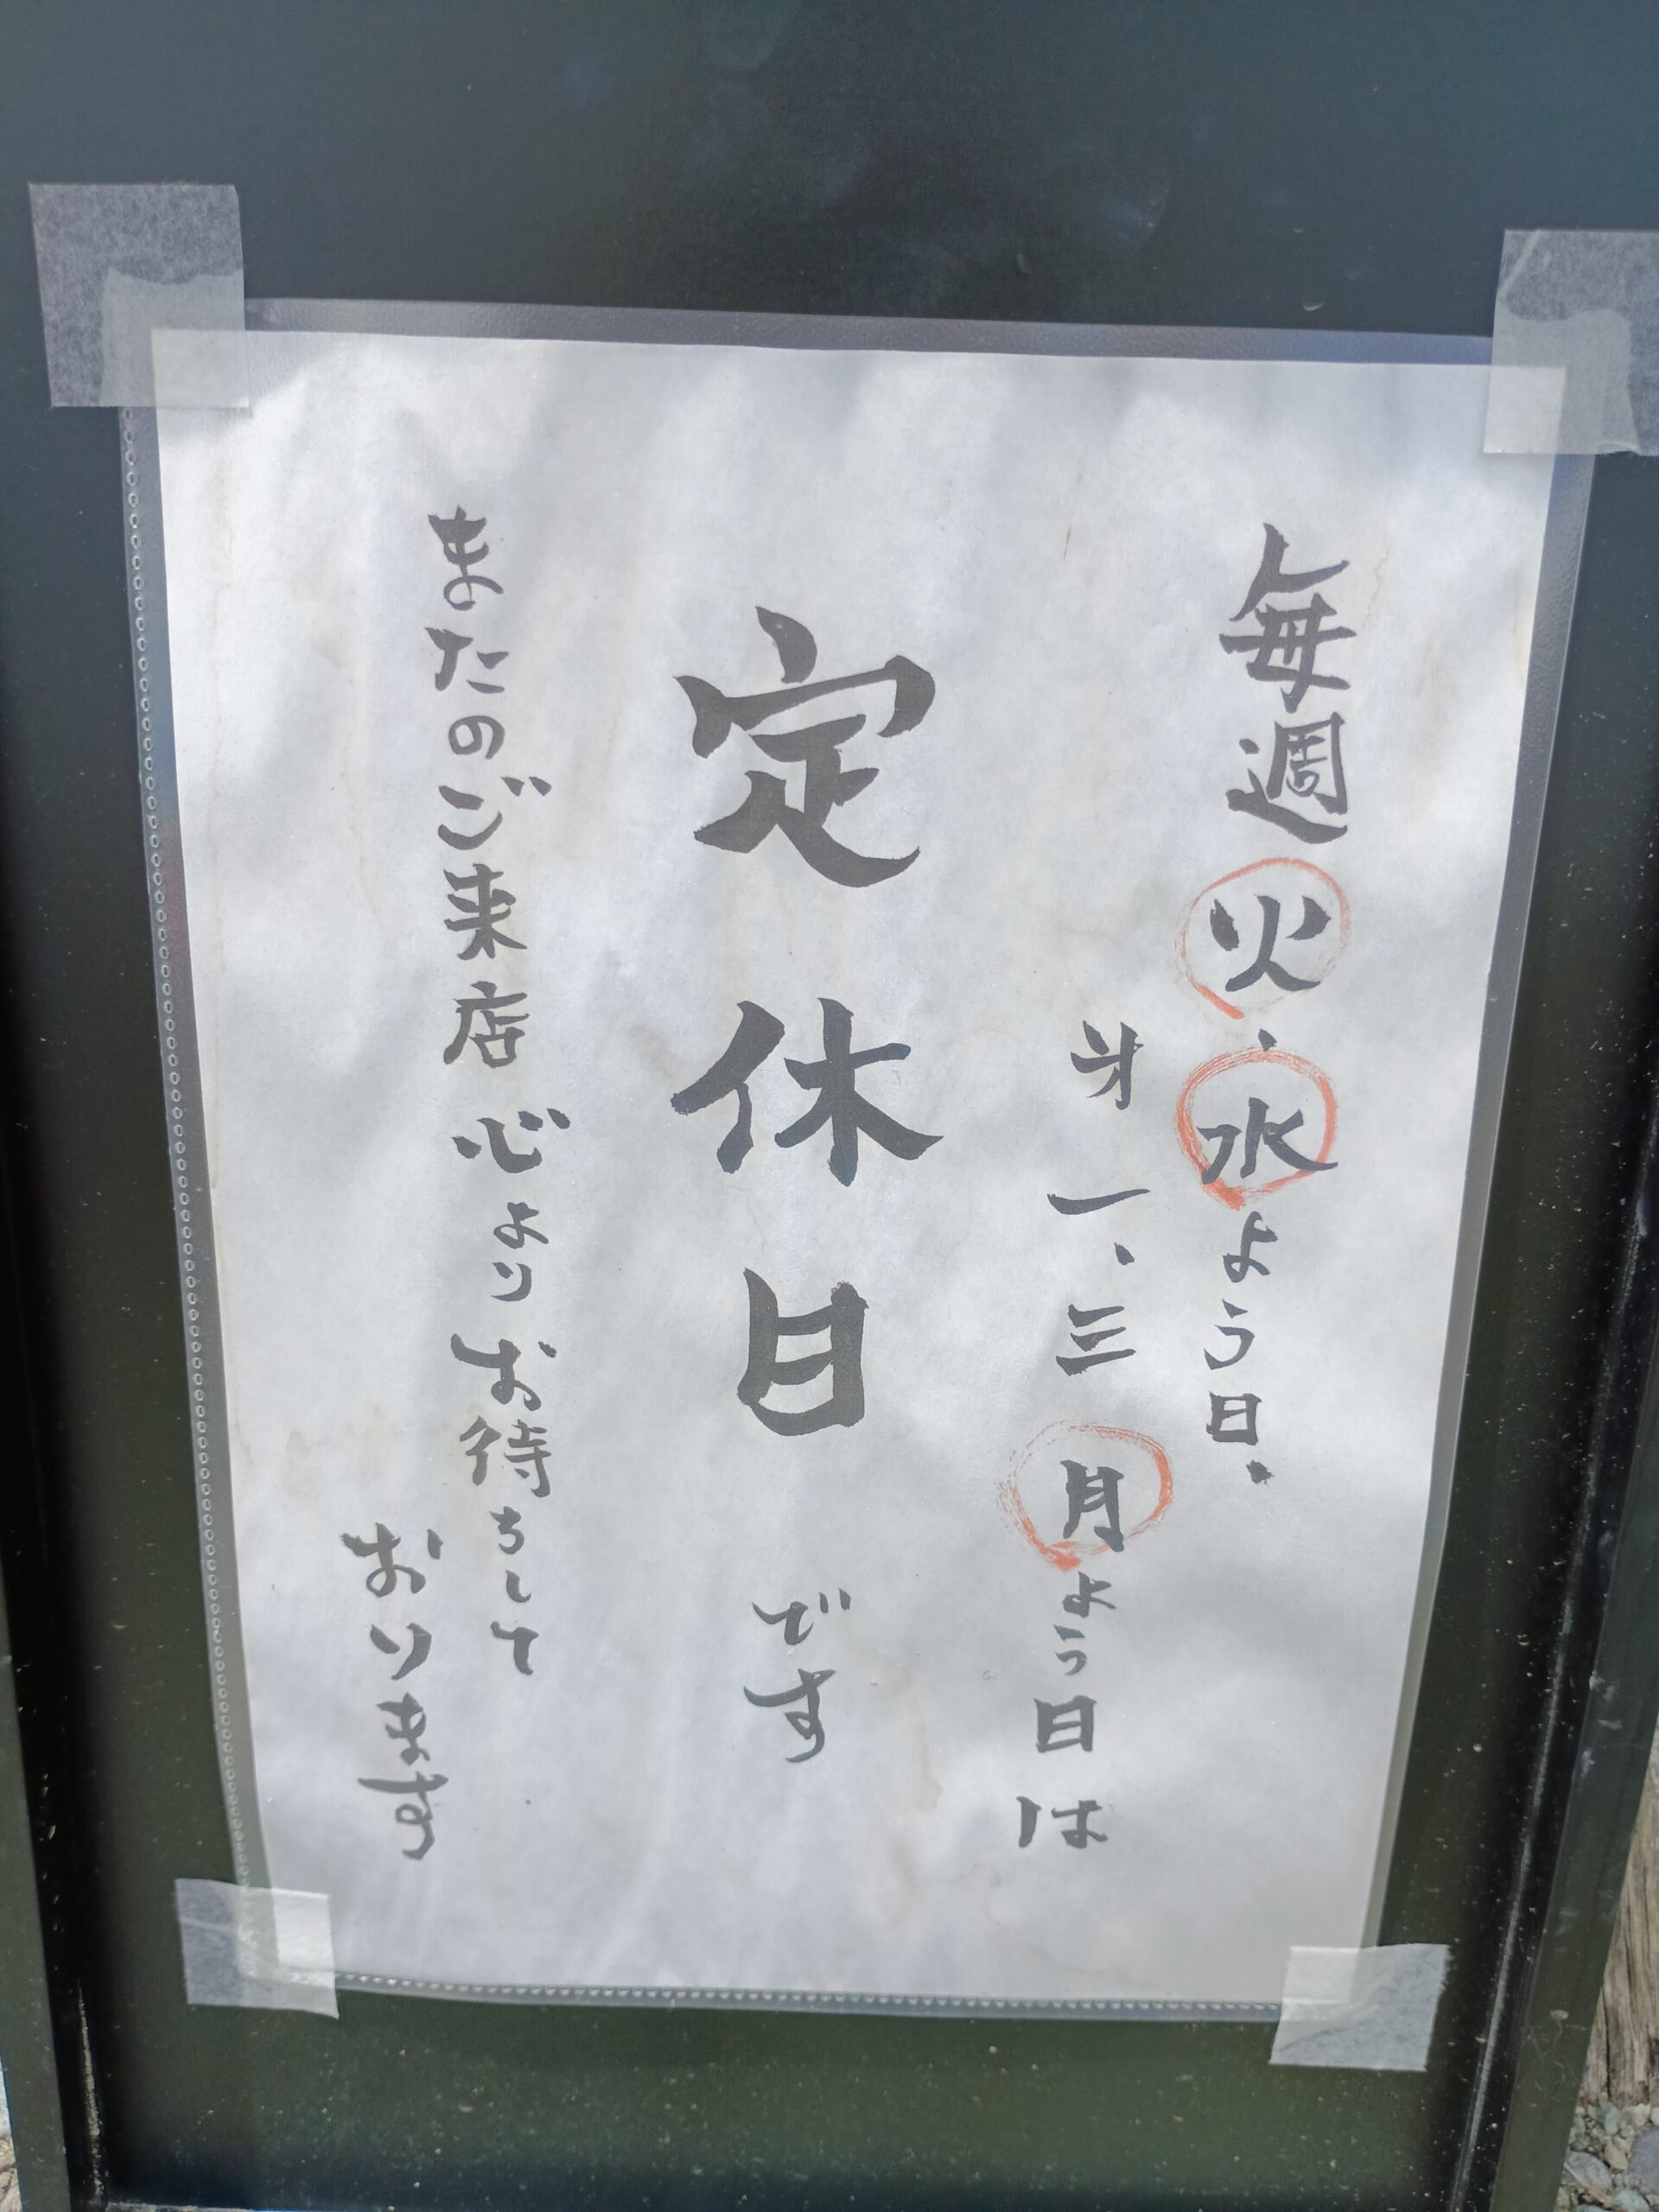 毎週火・水よう日・
㐧一・三月よう日は
定休日です
またのご来店心よりお待ちして
おります